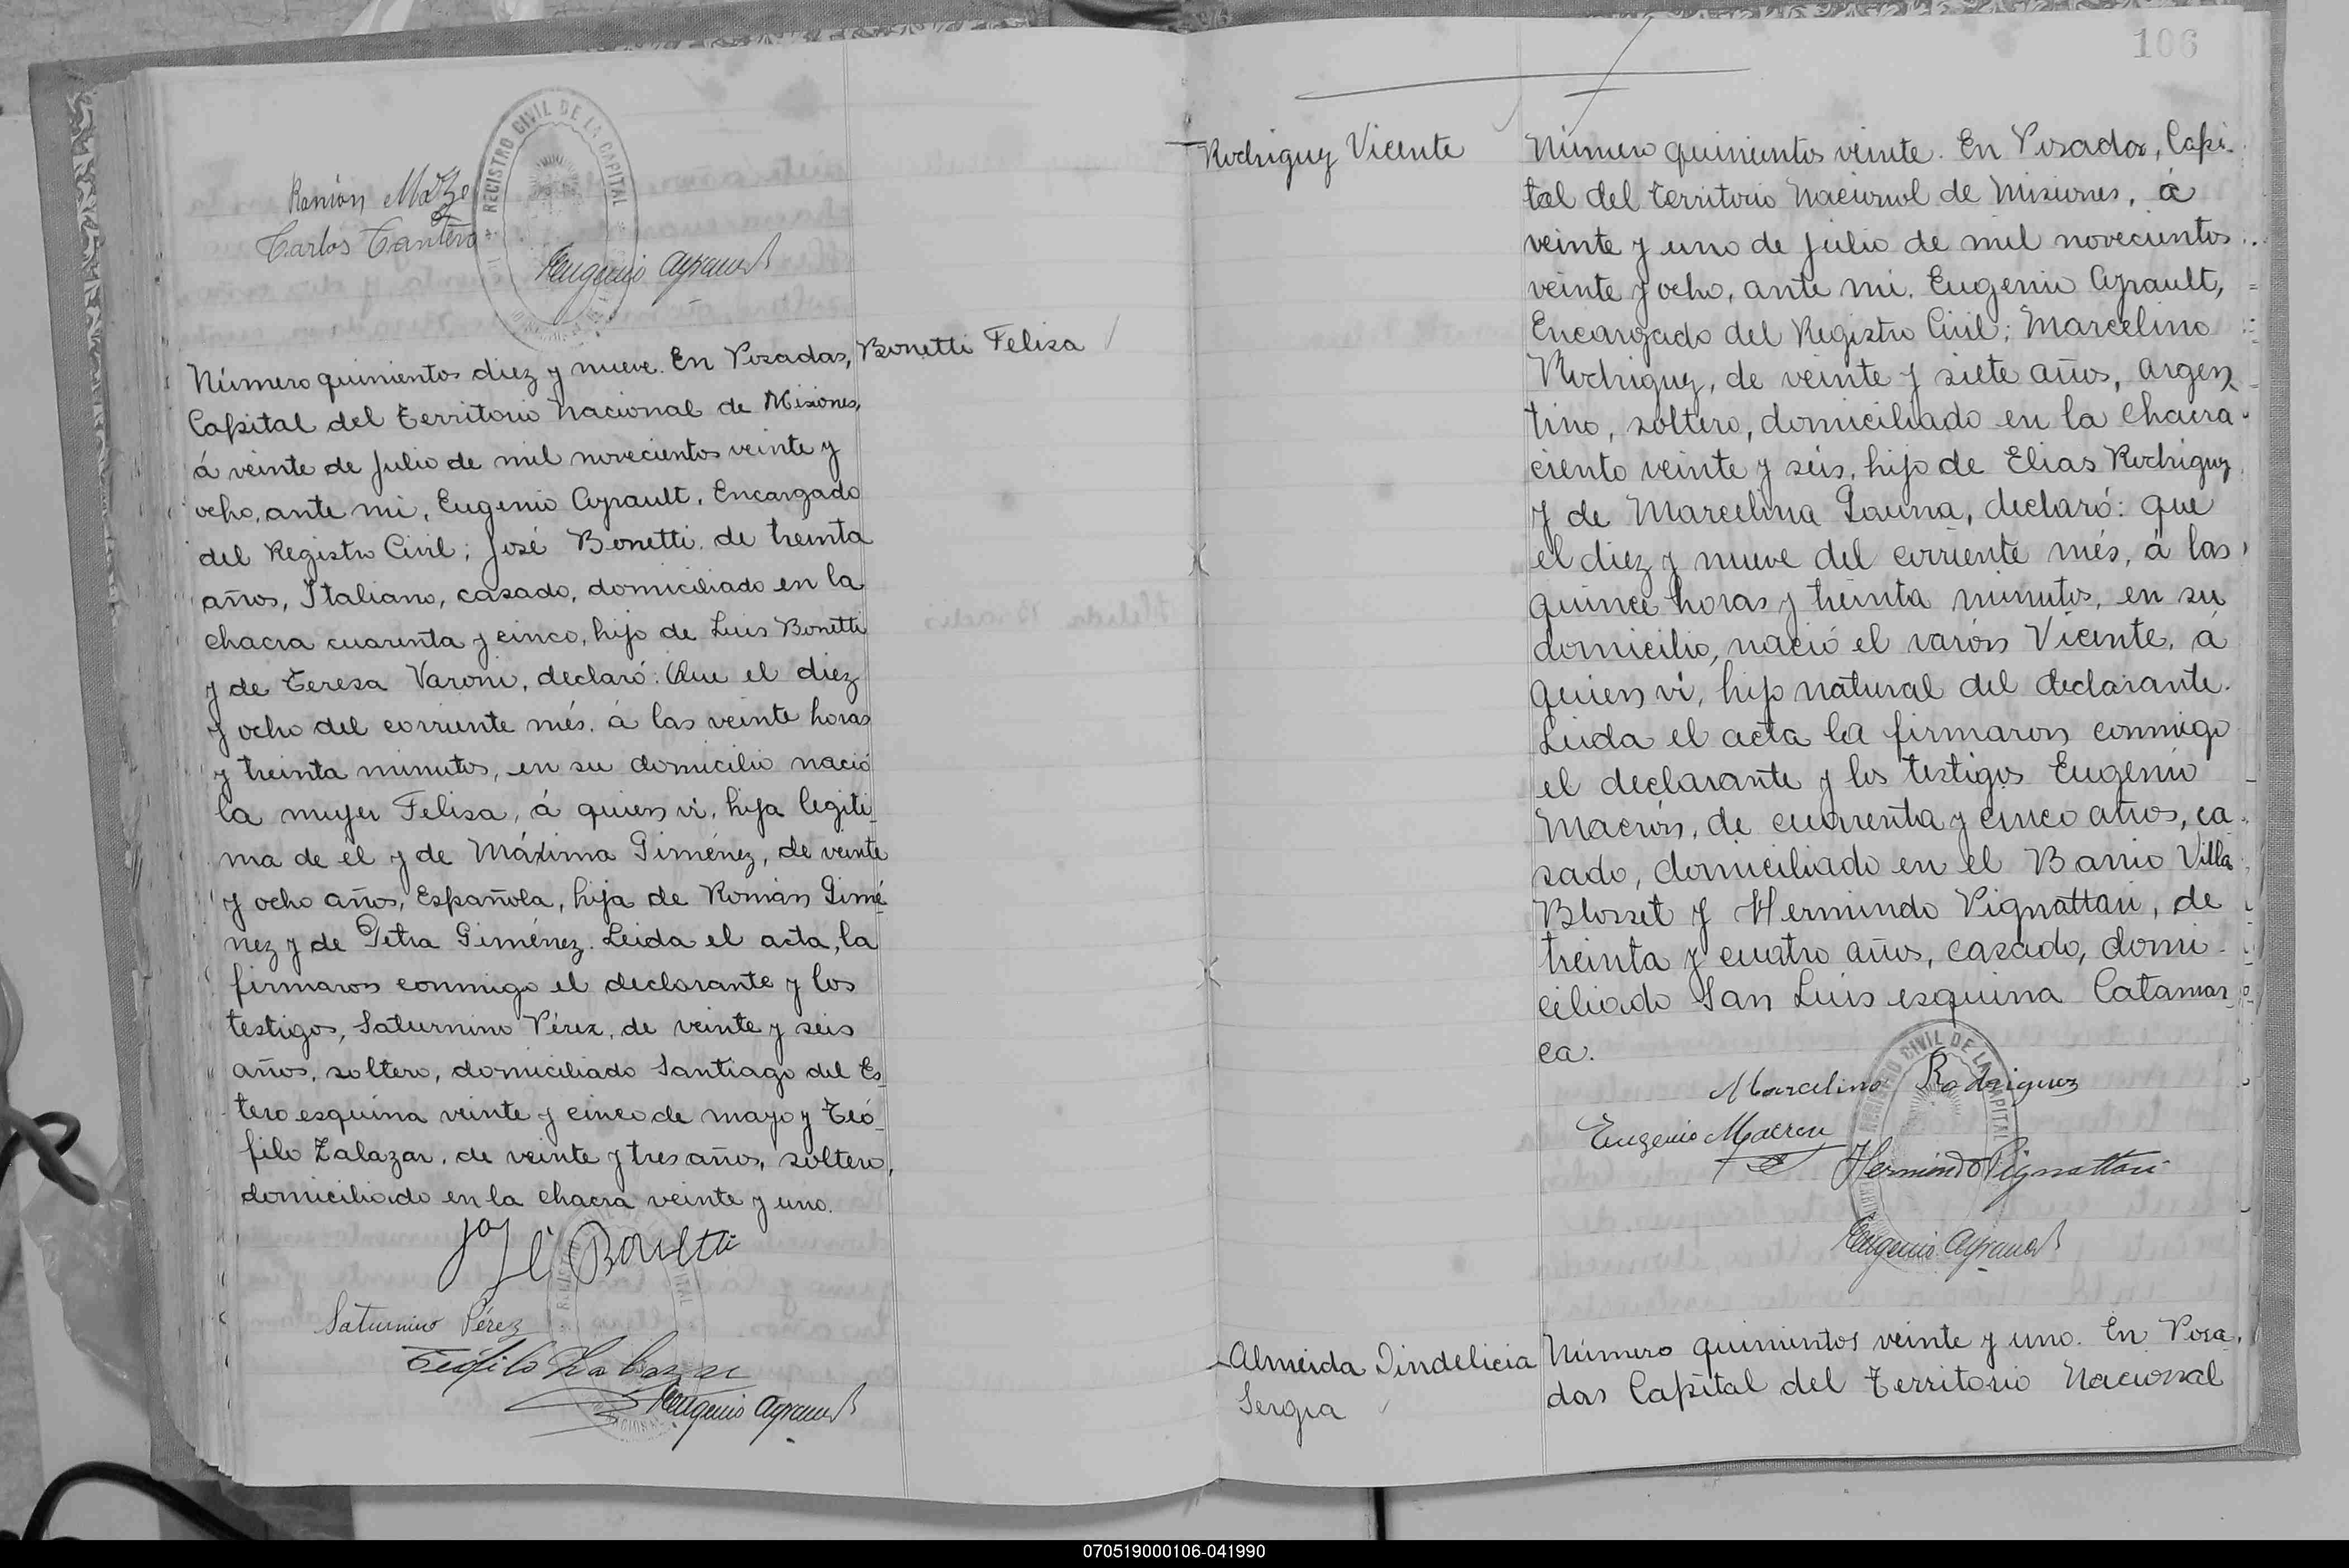 REGISTRO CIVIL DE LA CAPITAL
Ramón
Carlos Cantero
Eugenio Ayrault
Bonetti Felisa
Número quinientos diez y nueve. En Posadas,
Capital del Territorio Nacional de Misiones,
á veinte de Julio de mil novecientos veinte y
ocho, ante mi, Eugenio Ayrault, Encargado
del Registro Civil; José Bonetti, de treinta
años, Italiano, casado, domiciliado en la
chacra cuarenta y cinco, hijo de Luis Bonetti
y de Teresa Varoni, declaró: Que el diez
y ocho del corriente més, á las veinte horas
y treinta minutos, en su domicilio nació
la mujer Felisa, á quien ví, hija legiti_
ma de él y de Máxima Giménez, de veinte
y ocho años, Española, hija de Román Gimé_
nez y de Petra Giménez. Leida el acta, la
firmaron conmigo el declarante y los
testigos, Saturnino Pérez, de veinte y seis
años, soltero, domiciliado Santiago del Es_
tero esquina veinte y cinco de mayo y Teó_
filo Zalazar, de veinte y tres años, soltero,
domiciliado en la chacra veinte y uno.
José Bonetti
Saturnino Pérez
Teófilo Zalazar
Eugenio Ayrault
106
Rodriguez Vicente
Número quinientos veinte. En Posadas, Capi_
tal del Territorio Nacional de Misiones, á
veinte y uno de Julio de mil novecientos
veinte y ocho, ante mi, Eugenio Ayrault,
Encargado del Registro Civil; Marcelino
Rodriguez, de veinte y siete años, Argen_
tino, soltero, domiciliado en la chacra
ciento veinte y seis, hijo de Elias Rodriguez
y de Marcelina Gauna, declaró: que
el diez y nueve del corriente més, á las
quince horas y treinta minutos, en su
domicilio, nació el varón Vicente, á
quien ví, hijo natural del declarante.
Leida el acta la firmaron conmigo
el declarante y los testigos Eugenio
Macrón, de cuarenta y cinco años, ca_
sado, domiciliado en el Barrio Villa
Blosset y Hermindo Pignattari, de
treinta y cuatro años, casado, domi_
ciliado San Luis esquina Catamar_
ca.
REGISTRO CIVIL DE LA CAPITAL
Marcelino Rodriguez
Eugenio Macron
Hermindo Pignattari
Eugenio Ayrault
Almeida Dindelicia
Sergia
Número quinientos veinte y uno. En Posa_
das Capital del Territorio Nacional
070519000106-041990